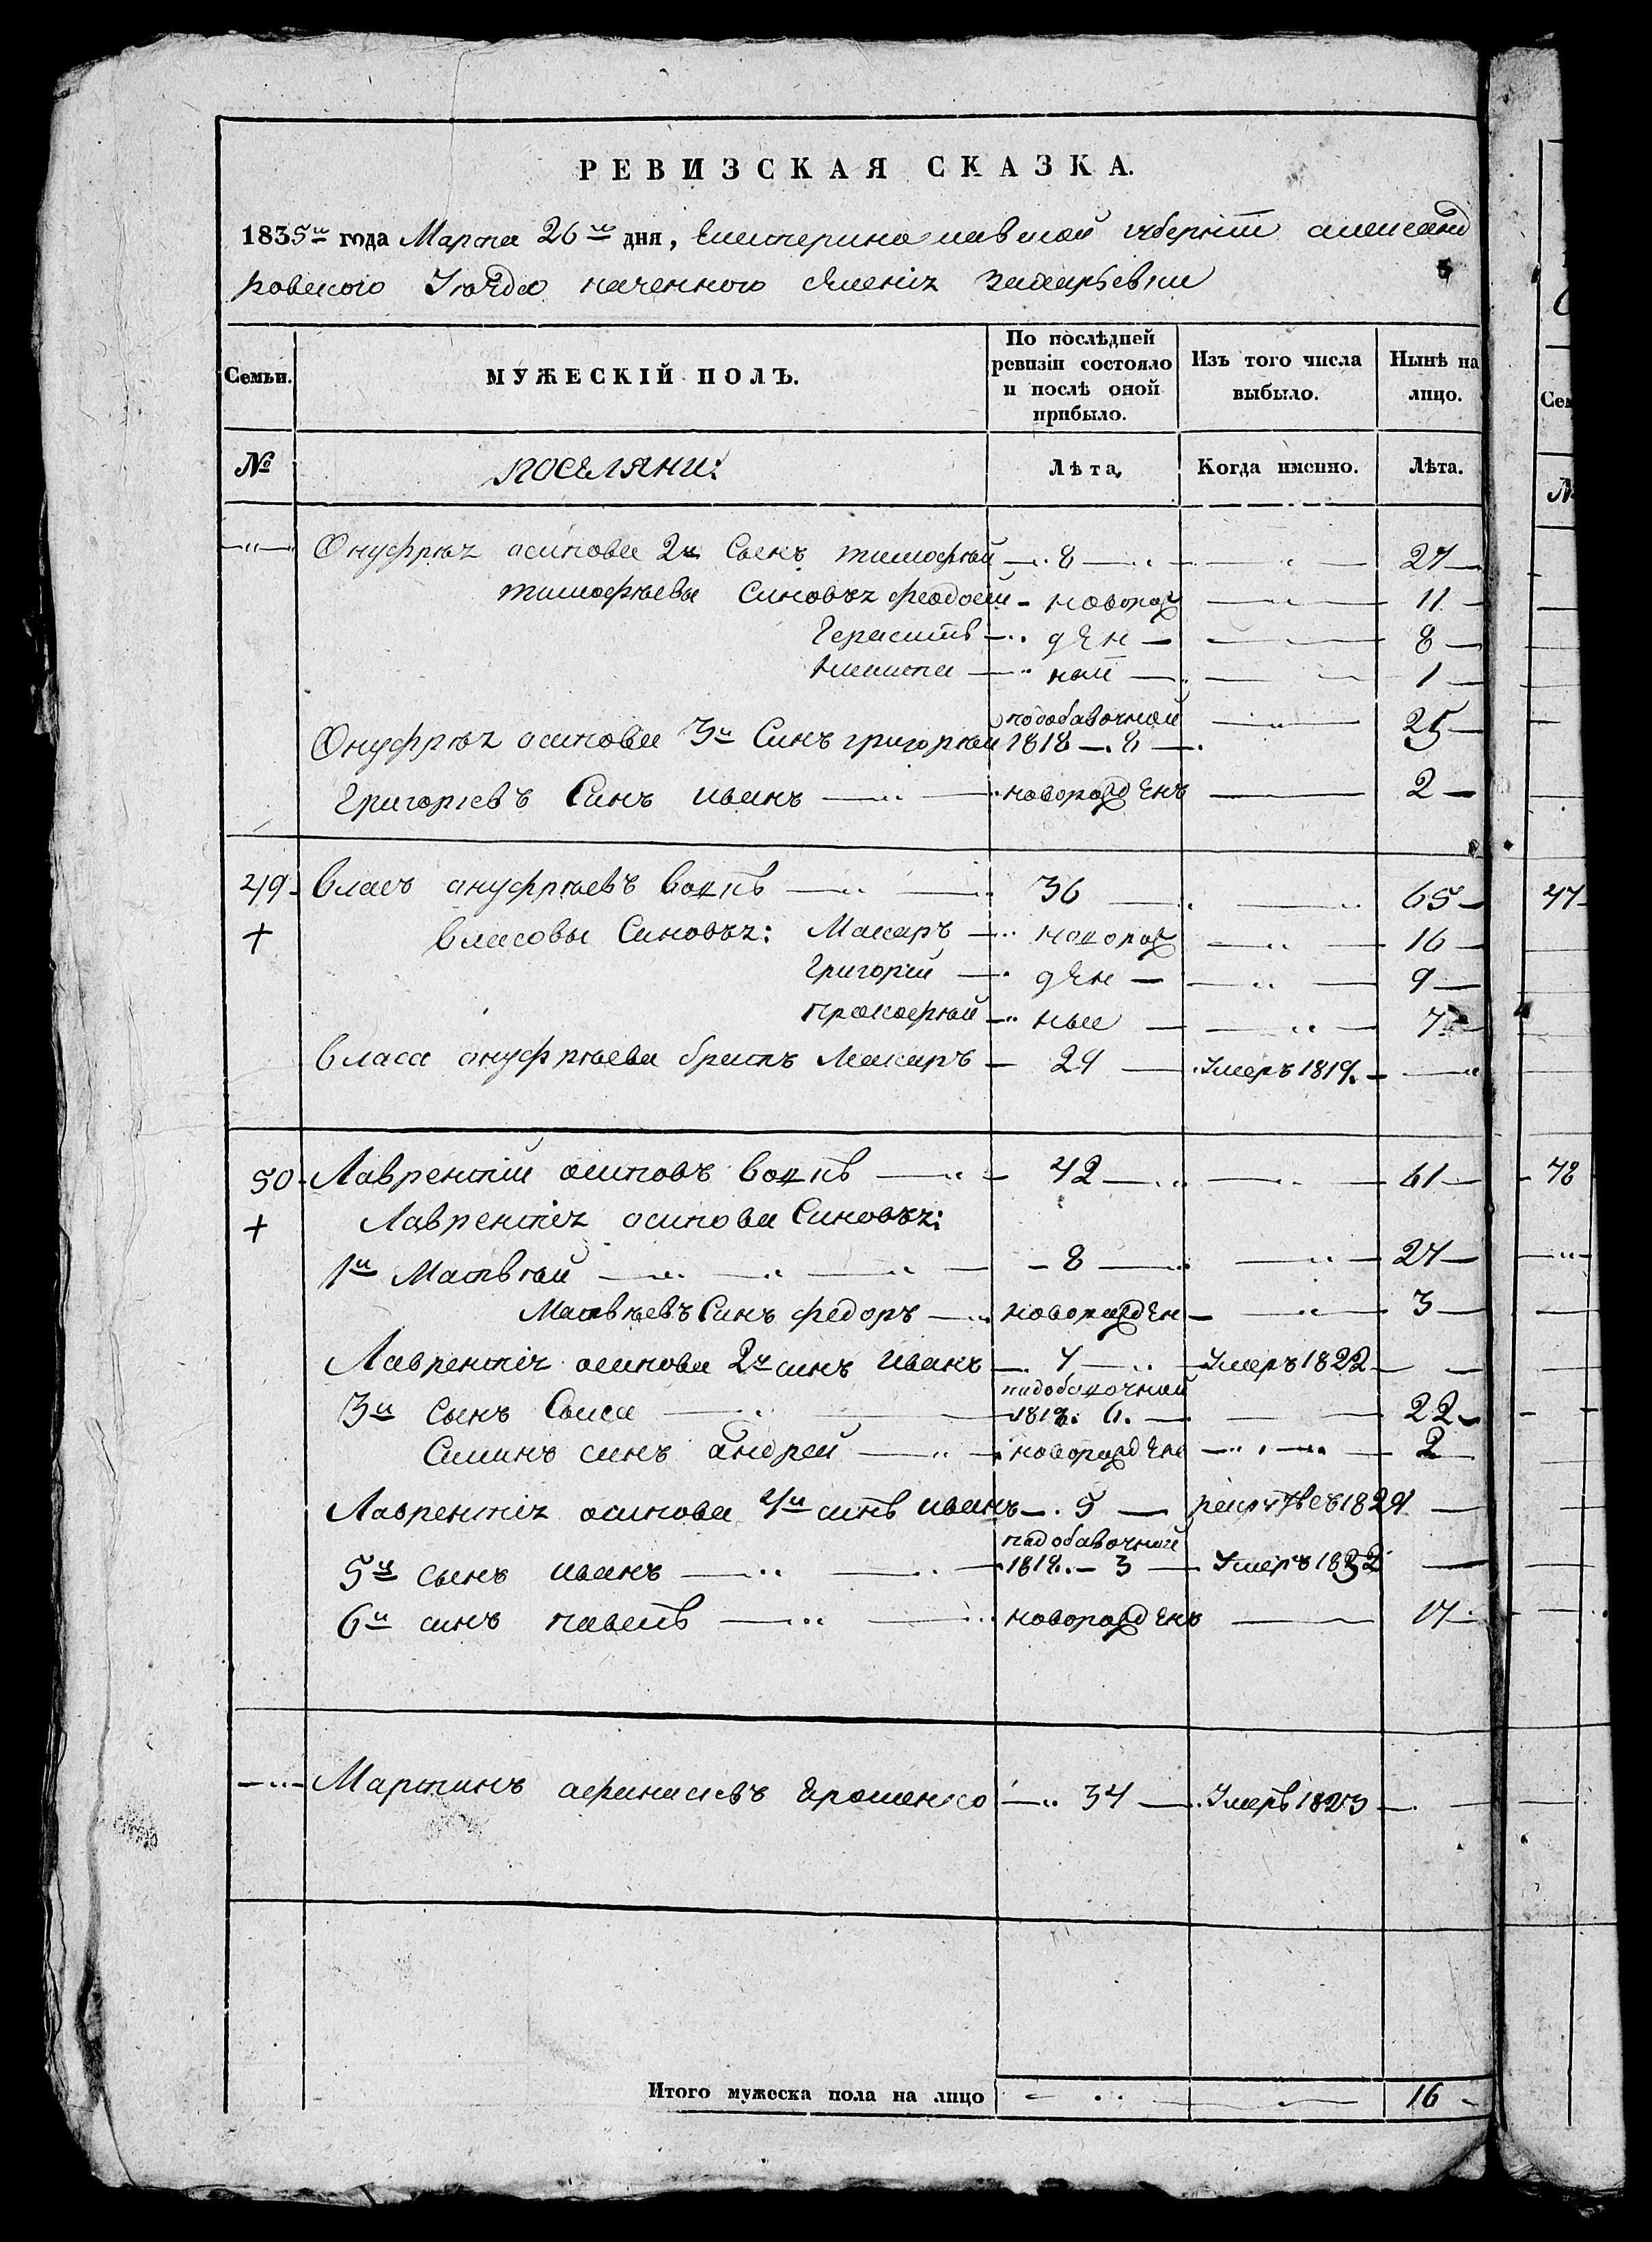 РЕВИЗСКАЯ СКАЗКА.
1835го года Марта 26го дня, Екатеринославской губернiи александ
ровского Уѣзда казенного селенiя захарьевки
Семьи. МУЖЕСКIЙ ПОЛЪ. По послѣдней ревизiи состояло и послѣ оной прибыло. Изъ того числа выбыло. Нынѣ на лицо.
№ поселяни: Лѣта, Когда именно. Лѣта.
Онуфрiя осипова 2й Сынъ тимофѣй 8 27
тимофѣевы Синовья феодосiй новорож 11
Герасимъ ден 8
никита ний 1
Онуфрiя осипова 3й Синъ григорiй подобавочной 1818 8 25
Григорiевъ Синъ иванъ новорожденъ 2
49 власъ ануфрiевъ вовкъ 36 65
+ власовы Синовья: Макаръ новорож 16
Григорiй ден 9
прокофiй ные 7
власа ануфрiева братъ Макаръ 29 Умеръ 1819.
50 Лаврентiй осиповъ вовкъ 42 61
+ Лаврентiя осипова Синовья:
1й Матвѣй 8 27
Матвѣевъ Синъ федоръ новорожден 3
Лаврентiя осипова 2й синъ иванъ 7 Умеръ 1822
3й Сынъ Савва подобавочной 1818. 6. 22
Савинъ синъ андрей новорожден 2
Лаврентiя осипова 4й синъ иванъ 5
5й сынъ иванъ подобавочной 1818. 3 Умеръ 1832
6й синъ павелъ новорожденъ 17
Мартинъ афанасiевъ Ярошенко 34 Умеръ 1823
Итого мужеска пола на лицо 16
47
48